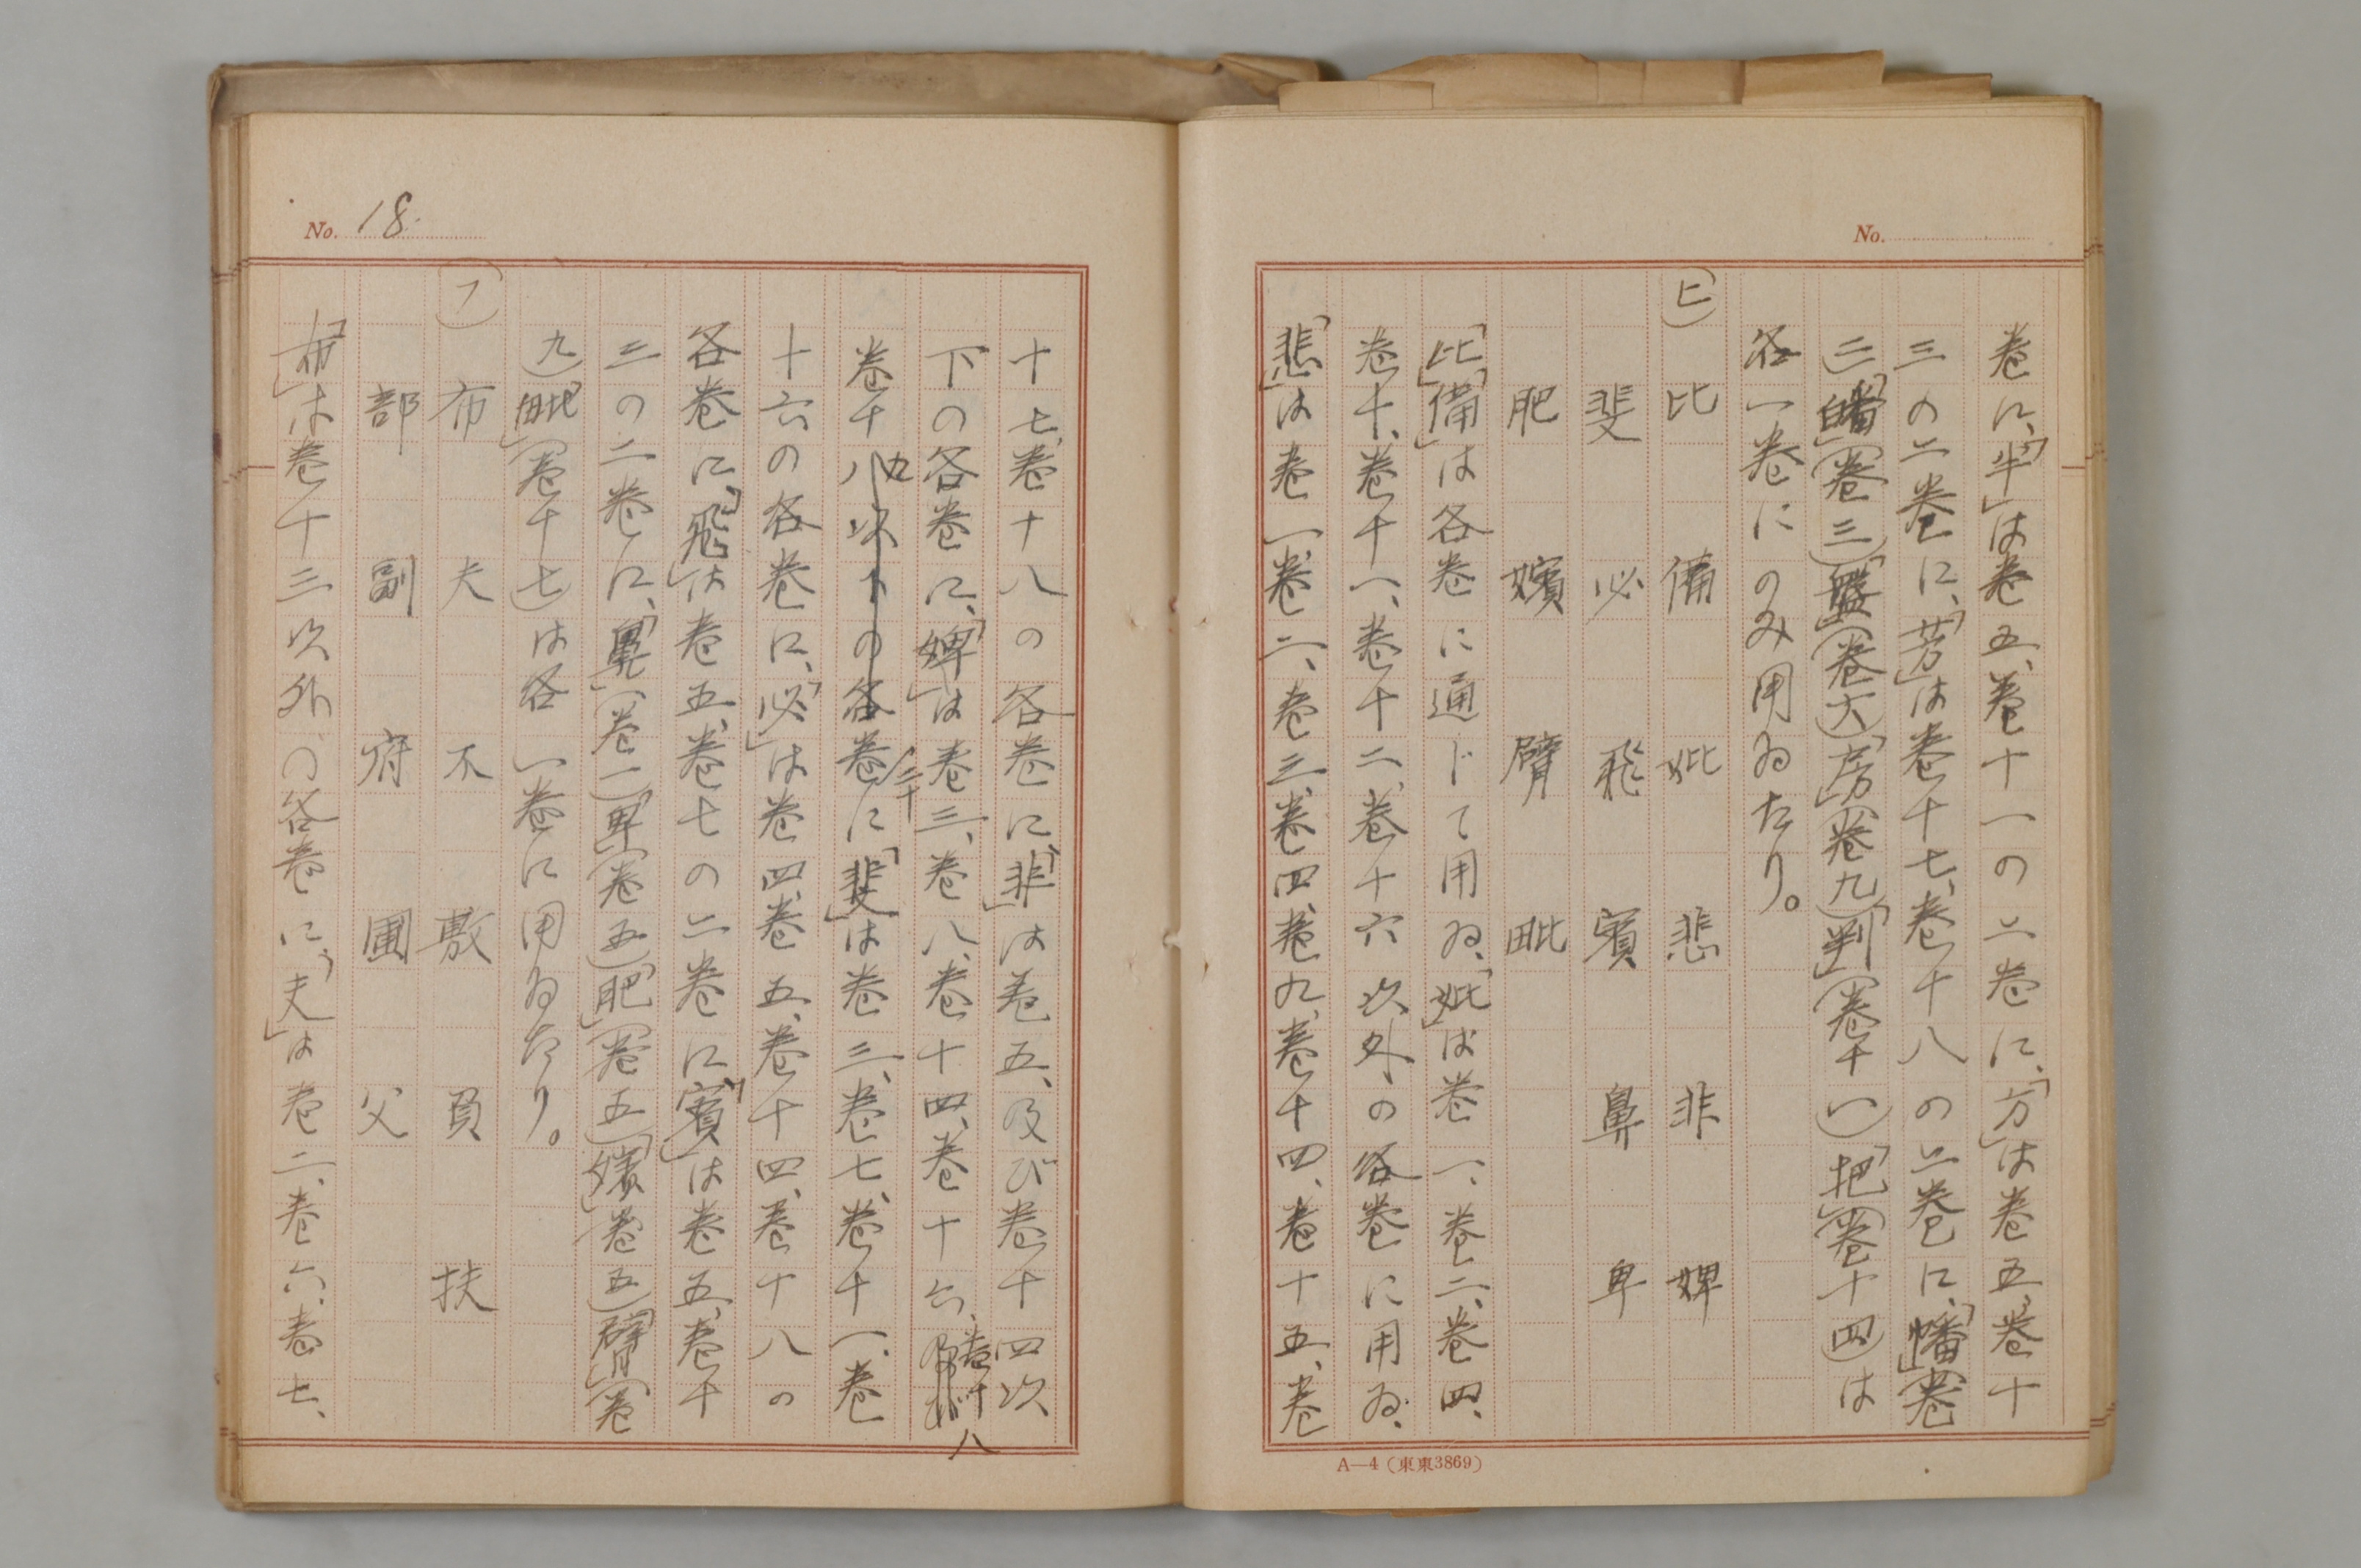 No.
巻に、「半」は巻五、巻十一の二巻に、「方」は巻五、巻十
三の二巻に、「芳」は巻十七、巻十八の二巻に、「幡」(巻
三)「皤」(巻三)「盤」(巻六)「房」(巻九)「判」(巻十一)「把」(巻十四)は
各一巻にのみ用ゐたり。
ヒ) 比 備 妣 悲 非 婢
斐 必 飛 賓 鼻 卑
肥 嬪 臂 毗
「比」「備」は各巻に通じて用ゐ、「妣」は巻一、巻二、巻四、
巻十、巻十一、巻十二、巻十六以外の各巻に用ゐ、
「悲」は巻一、巻二、巻三、巻四、巻九、巻十四、巻十五、巻
A—4 (東東3869)
No. 18.
十七、巻十八の各巻に、「非」は巻五、及び巻十四以
下の各巻に、「婢」は巻三、巻八、巻十四、巻十六、巻十八
巻十九、二十の各巻に「斐」は巻三、巻七、巻十一、巻
十六の各巻に、「必」は巻四、巻五、巻十四、巻十八の
各巻に、「飛」は巻五、巻七の二巻に、「賓」は巻五、巻十
三の二巻に、「鼻」(巻一)「卑」(巻五)「肥」(巻五)「嬪」(巻五)「臂」(巻
九)「毗」(巻十七)は各一巻に用ゐたり。
フ) 布 夫 不 敷 負 扶
部 副 府 圃 父
「布」は巻十三以外の各巻に、「夫」は巻二、巻六、巻七、